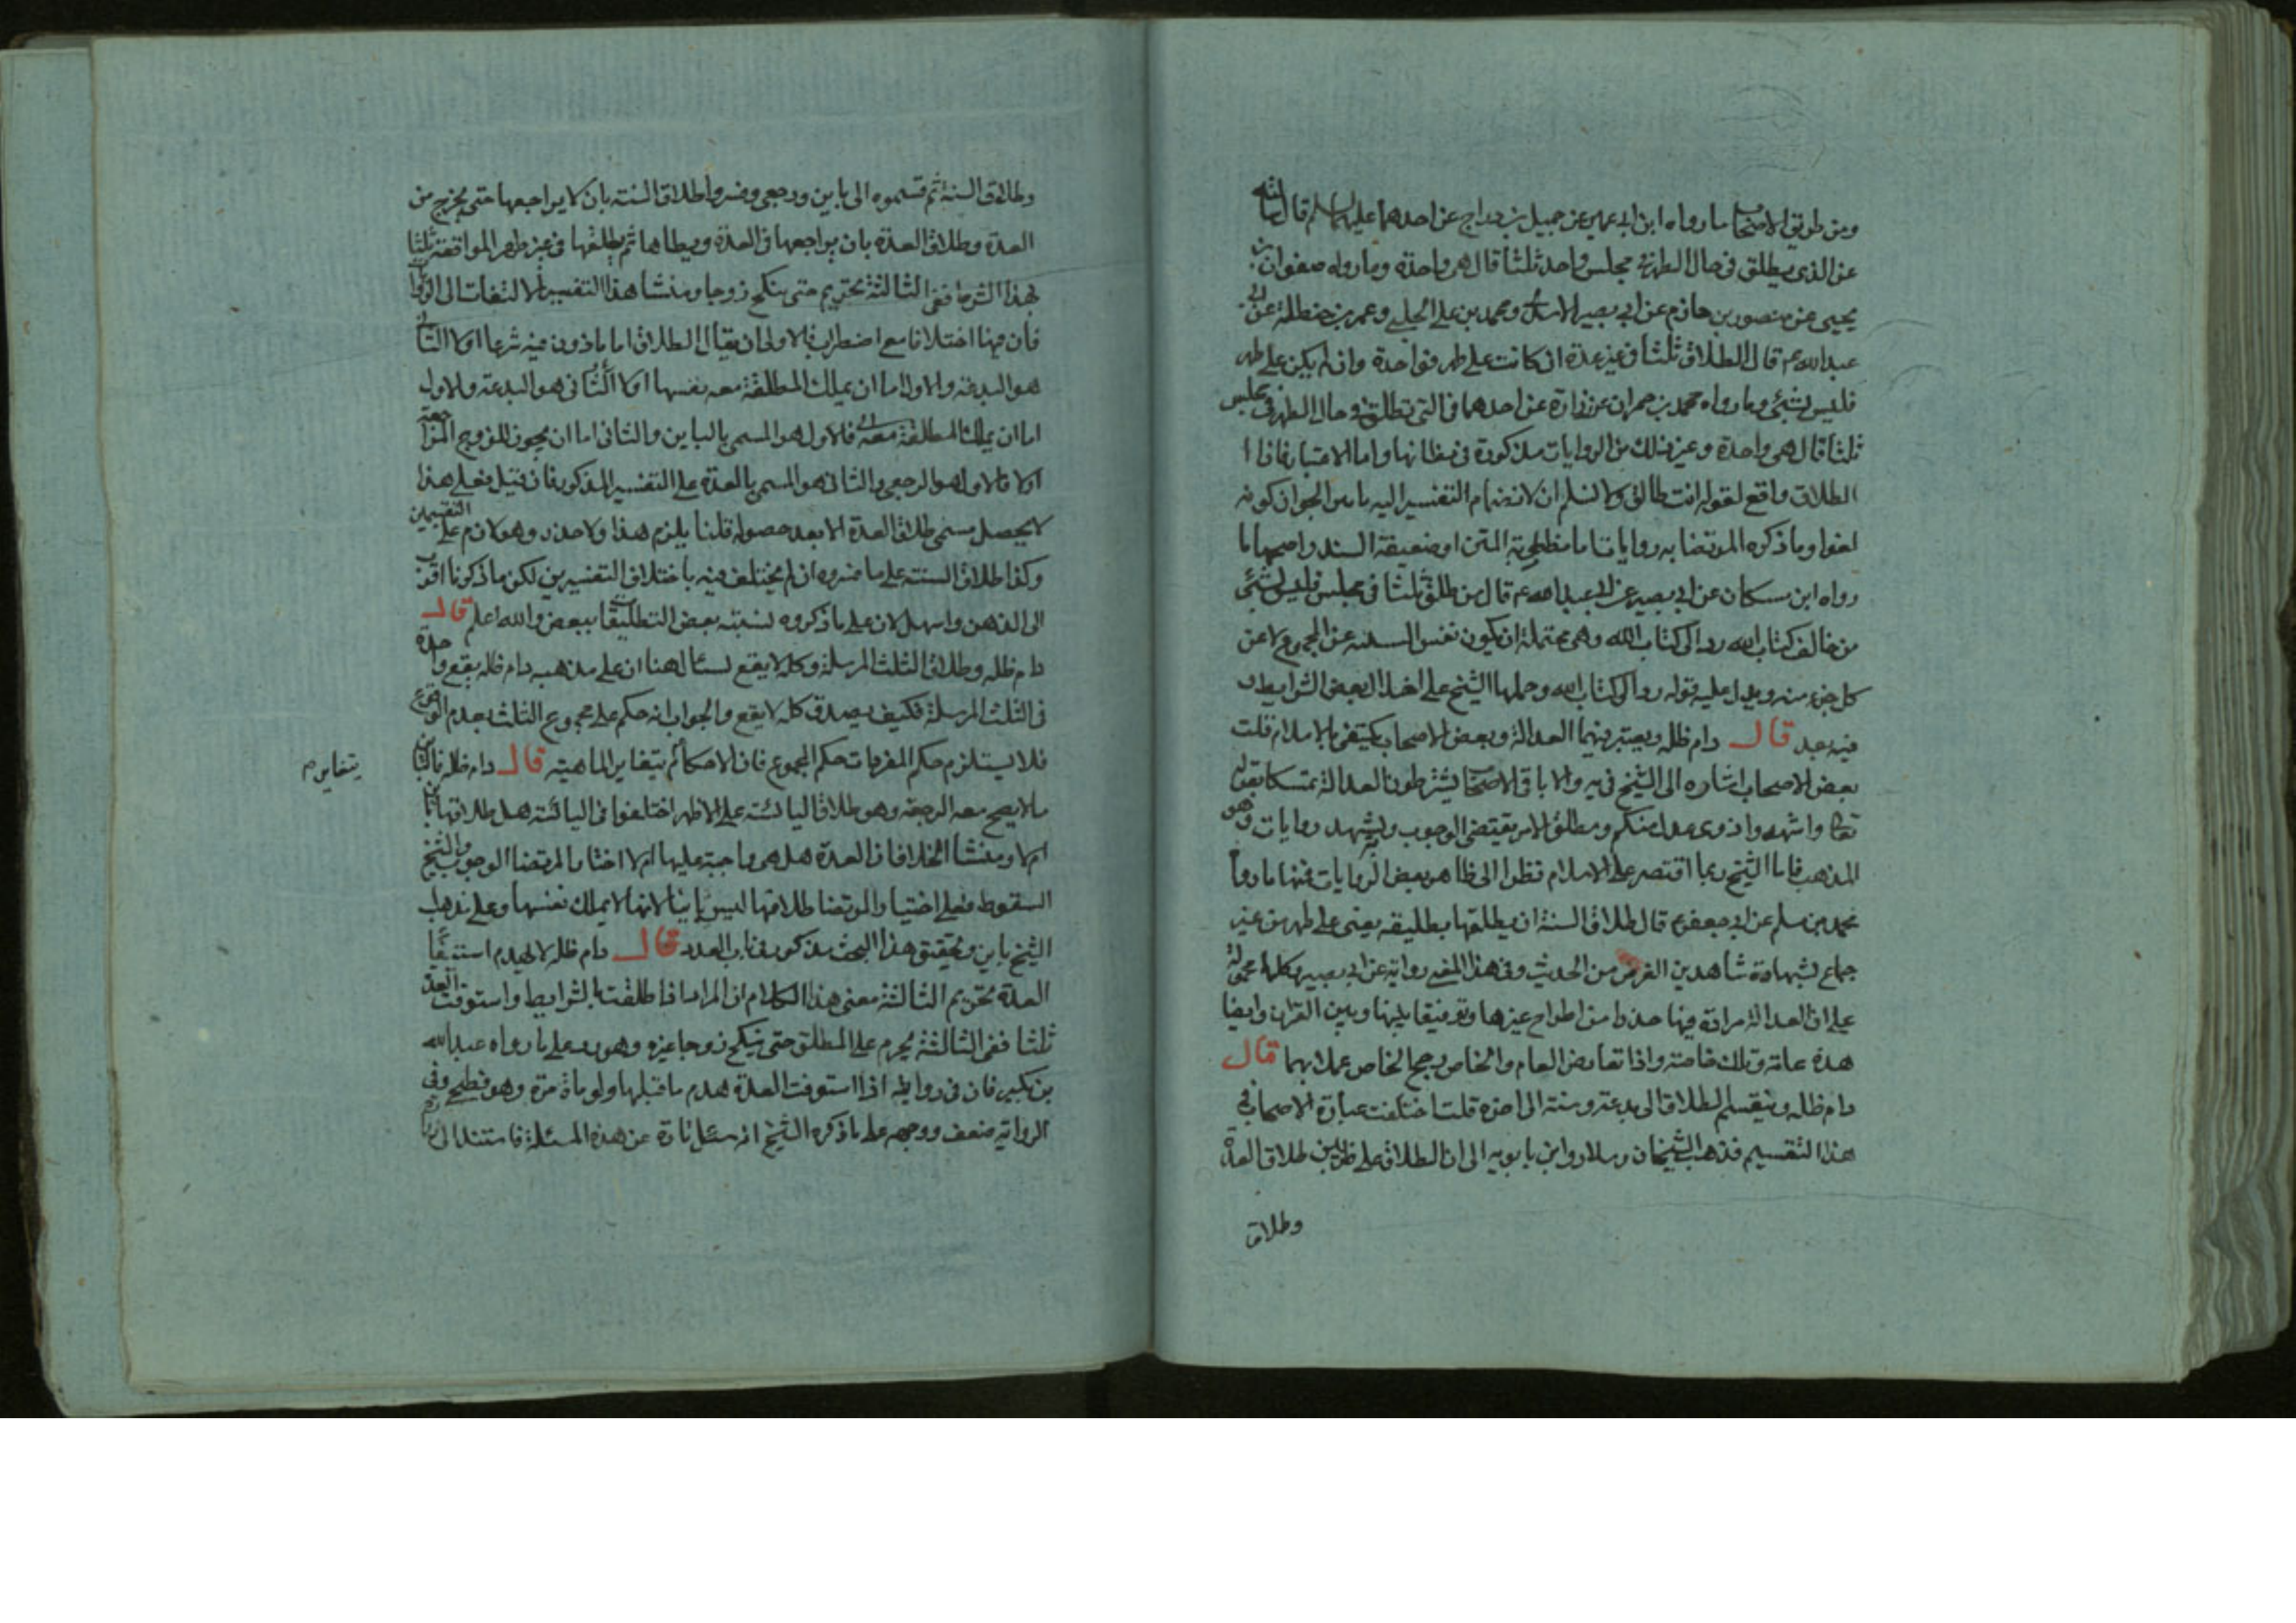 ومن طريق الاصحاب ما رواه ابن ابي عمير عن جميل بن دراج عن احدهما عليهما السلام قال سالته
عن الذي يطلق في حال الطهر في مجلس واحد ثلثا قال هي واحدة وما رواه صفوان بن
يحيى عن منصور بن حازم عن ابي بصير الاسدي ومحمد بن علي الحلبي وعمر بن حنظلة عن ابي
عبد الله عم قال الطلاق ثلثا في غير عدة ان كانت على طهر فواحدة وان لم يكن على طهر
فليس بشئ وما رواه محمد بن حمران عن زرارة عن احدهما في التي تطلق في حال الطهر في مجلس
ثلثا قال هي واحدة وغير ذلك من الروايات مذكورة في مظانها واما الاعتبار فاذا
الطلاق واقع لقوله انت طالق ولا نسلم ان لانضمام التفسير اليه تاثيرا لجواز كونه
لغوا وما ذكره المرتضا به روايات اما مضطربة المتن او ضعيفة السند واصحها ما
رواه ابن مسكان عن ابي بصير عن ابي عبد الله عم قال من طلق ثلثا في مجلس فليس بشئ
من خالف كتاب الله رد الى كتاب الله وهي محتملة ان يكون نفس السنة عن المجموع لا عن
كل جزء منه ويدل عليه قوله رد الى كتاب الله وحملها الشيخ على اخلال بعض الشرايط و
فيه بعد قال دام ظله ويعتبر فيهما العدالة وبعض الاصحاب يكتفي بالاسلام قلت
بعض الاصحاب اشاره الى الشيخ في يه والا باقي الاصحاب يشترطون العدالة تمسكا بقوله
تعالى واشهدوا ذوى عدل منكم ومطلق الامر يقتضي الوجوب ويشهد روايات وهو
المذهب فاما الشيخ ربما اقتصر على الاسلام نظرا الى ظاهر بعض الروايات فمنها ما رواه
محمد بن مسلم عن ابي جعفر عم قال طلاق السنة ان يطلقها بطليقه يعني على طهر من غير
جماع بشهادة شاهدين الغرض من الحديث وفي هذا المعنى رواية عن ابي بصير وكلها محمولة
على ان العدالة مرادة فيها حذرا من اطراح غيرها وتوفيقا بينها وبين القران وايضا
هذه عامة وتلك خاصة واذا تعارض العام والخاص يرجح الخاص عملا بهما قال
دام ظله وينقسم الطلاق الى بدعة وسنة الى اخره قلت اختلفت عبارة الاصحاب في
هذا التقسيم فذهب الشيخان وسلار وابن بابويه الى ان الطلاق على ضربين طلاق العدة
وطلاق
وطلاق السنة ثم قسموه الى باين ورجعي وفسروا طلاق السنة بان لا يراجعها حتى يخرج من
العدة وطلاق العدة بان يراجعها في العدة ويطاها ثم يطلقها في غير طهر المواقعة ثلثا
بهذا الشرط ففي الثالثة تحريم حتى ينكح زوجا ومنشا هذا التفسير الالتفات الى الروايات
فان فيها اختلافا مع اضطراب والاولى ان يقال الطلاق اما ماذون فيه شرعا اولا الثاني
هو البدعة والاول اما ان يملك المطلقة معه نفسها اولا الثاني هو البدعة والاول
اما ان يملك المطلقة معه فالاول هو المسمى بالباين والثاني اما ان يجوز للزوج المراجعة
اولا فالاول هو الرجعي والثاني هو المسمى بالعدة على التفسير المذكور فان قيل فعلى هذا
لا يحصل مسمى طلاق العدة الا بعد حصوله قلنا يلزم هذا ولا حذر وهو لازم على التقسيمين
وكذا طلاق السنة على ما فسروه ان لم يختلف فيه باختلاف التفسيرين لكن ما ذكرنا اقرب
الى الذهن واسهل لان على ما ذكروه لنسبته بعض التطليقات ببعض والله اعلم قال
دام ظله وطلاق الثلث المرسلة وكله لا يقع لسائل هنا ان على مذهبه دام ظله يقع واحدة
في الثلث المرسلة فكيف يصدق كله لا يقع والجواب انه حكم على مجموع الثلث بعدم الوقوع
فلا يستلزم حكم المفردات حكم المجموع فان الاحكام تتغاير الماهية قال دام ظله فالباين
بتغاير م
ما لا يصح معه الرجعة وهو طلاق اليائسة على الاظهر اختلفوا في اليائسة هل طلاقها باين
ام لا ومنشا الخلاف ان العدة هل هي واجبة عليها ام لا اختار المرتضا الوجوب والشيخ
السقوط فعلى اختيار المرتضا طلاقها ليس باينا لانها لا يملك نفسها وعلى مذهب
الشيخ باين وتحقيق هذا البحث مذكور في باب العدد قال دام ظله لا يهدم استيفاء
العدة تحريم الثالثة معنى هذا الكلام ان المراة اذا طلقت بالشرايط واستوفت العدة
ثلثا ففي الثالثة يحرم على المطلق حتى ينكح زوجا غيره وهو رد على ما رواه عبد الله
بن بكير فان في روايته اذا استوفت العدة هدم ما قبلها ولو ماة مرة وهو فطحي وفي
الرواية ضعف ووجهه على ما ذكره الشيخ انه سئل تارة عن هذه المسئلة فاستند الى